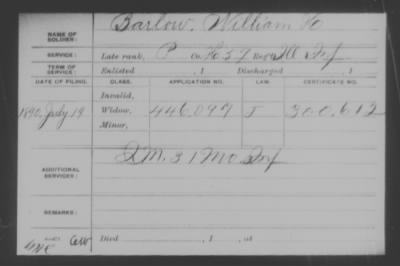 NAME OF SOLDIER: Barlow, William H
SERVICE: Late rank, P Co. H 59 Reg't Ill Inf
TERM OF SERVICE: Enlisted , 1 Discharged , 1
DATE OF FILING. CLASS. APPLICATION NO. LAW. CERTIFICATE NO.
Invalid,
1890, July 19 Widow, 446.097 J 300.612
Minor,
ADDITIONAL SERVICES: Q.M. 31 Mo Inf
REMARKS:
Died , 1 , at